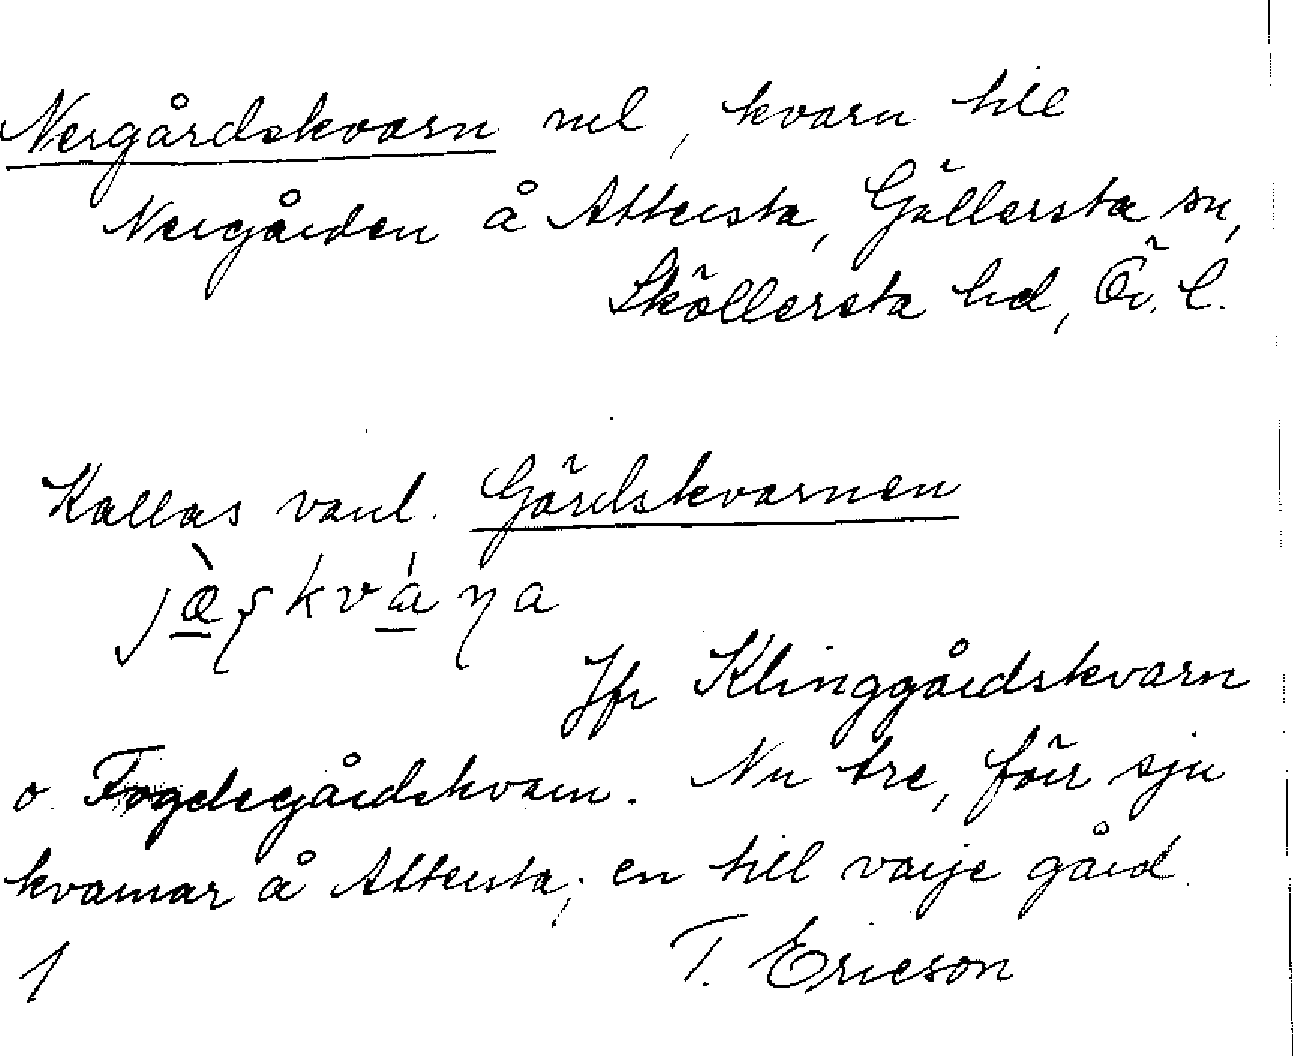 Nergårdskvarn nul, kvarn till
Nergården å Attersta, Gällersta sn,
Sköllersta hd, Ör. l.
Kallas vanl. Gärdskvarnen
Jfr Klinggårdskvarn
o. Fogdegårdskvarn. Nu tre, förr sju
kvarnar å Attersta, en till varje gård.
T. Ericson
1